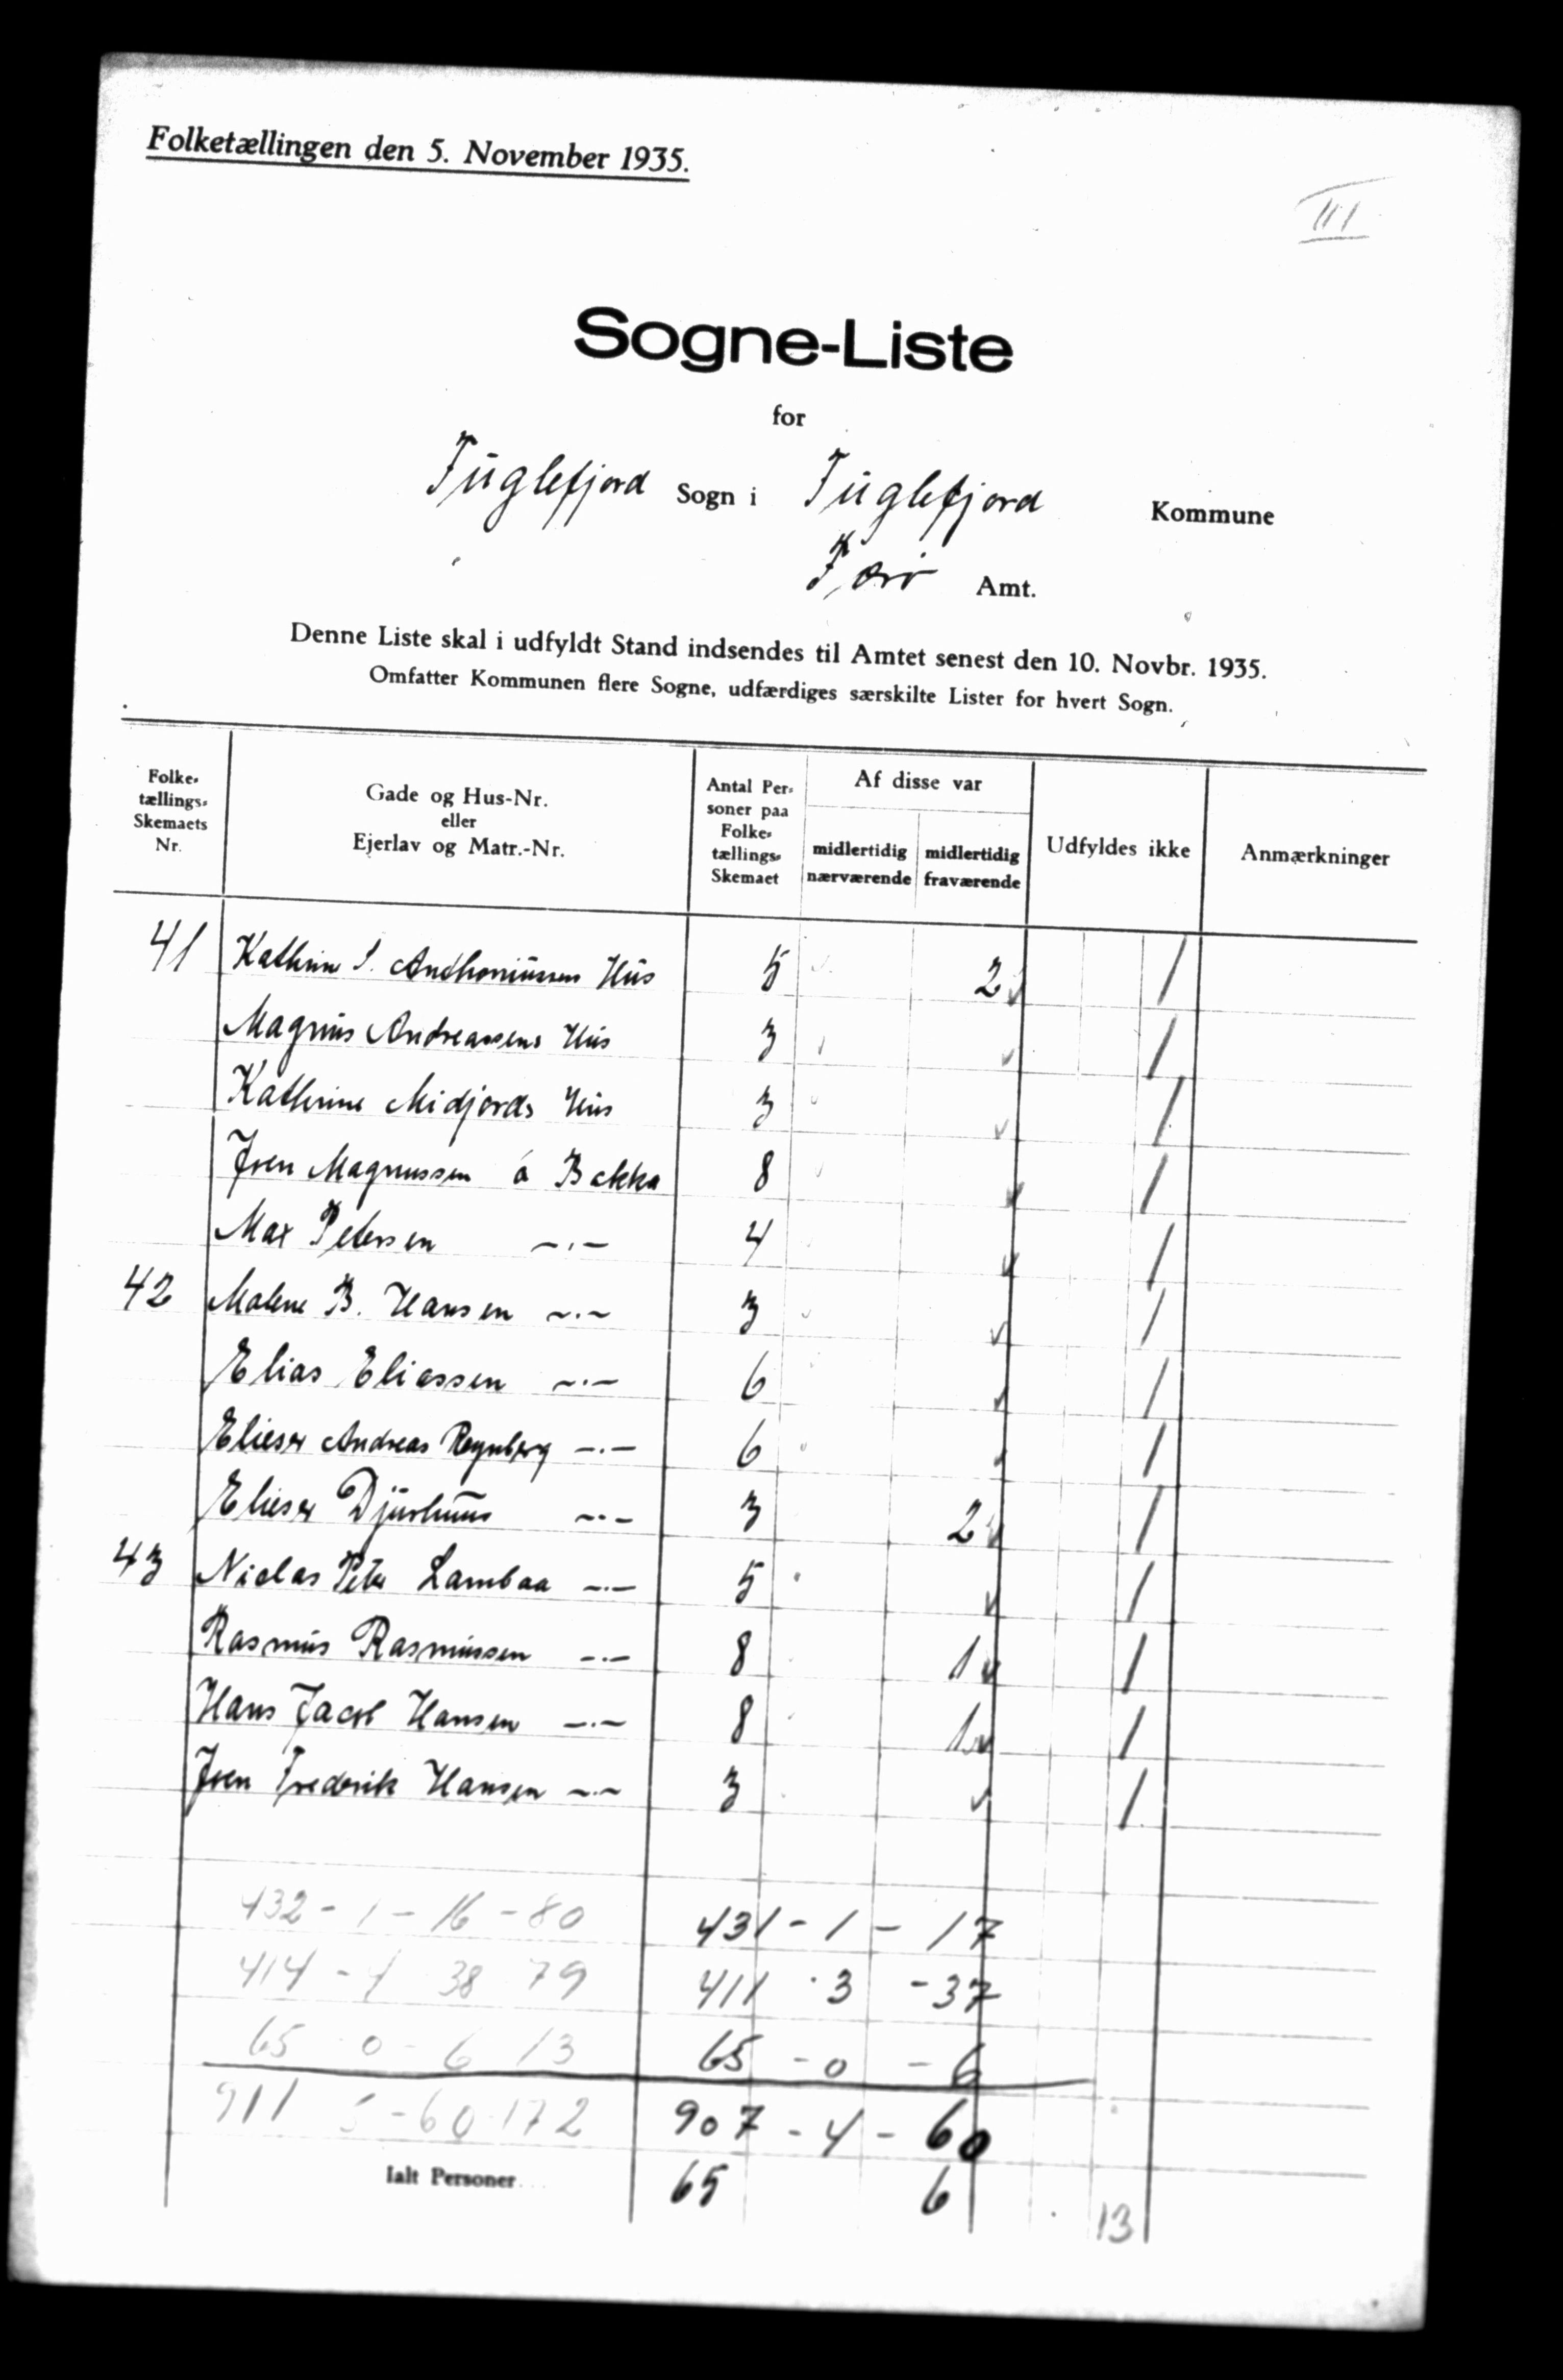 Folketællingen den 5. November 1935.
III
Sogne-Liste
for
Fuglefjord Sogn i Fuglefjord Kommune
Færø Amt.
Denne Liste skal i udfyldt Stand indsendes til Amtet senest den 10. Novbr. 1935.
Omfatter Kommunen flere Sogne, udfærdiges særskilte Lister for hvert Sogn.
Folketællings-Skemaets Nr. Gade og Hus-Nr. eller Ejerlav og Matr.-Nr. Antal Personer paa Folketællings-Skemaet Af disse var midlertidig nærværende midlertidig fraværende Udfyldes ikke Anmærkninger
41 Kathrine S. Anthoniussens Hus 5 2 /
Magnus Andreassens Hus 3 /
Katherine Midjords Hus 3 /
Joen Magnussen á Bakka 8 /
Max Petersen -"- 4 /
42 Malene B. Hansen -"- 3 /
Elias Eliassen -"- 6 /
Elieser Andreas Reynberg -"- 6 /
Elieser Djurhuus -"- 3 2 /
43 Niclas Peter Lambaa -"- 5 /
Rasmus Rasmussen -"- 8 1 /
Hans Jacob Hansen -"- 8 1 /
Joen Frederik Hansen -"- 3 /
432 - 1 - 16 - 80 431 - 1 - 17
414 - 4 38 79 411 · 3 - 37
65 0 - 6 13 65 - 0 - 6
911 5 - 60 172 907 - 4 - 60
Ialt Personer 65 6 13